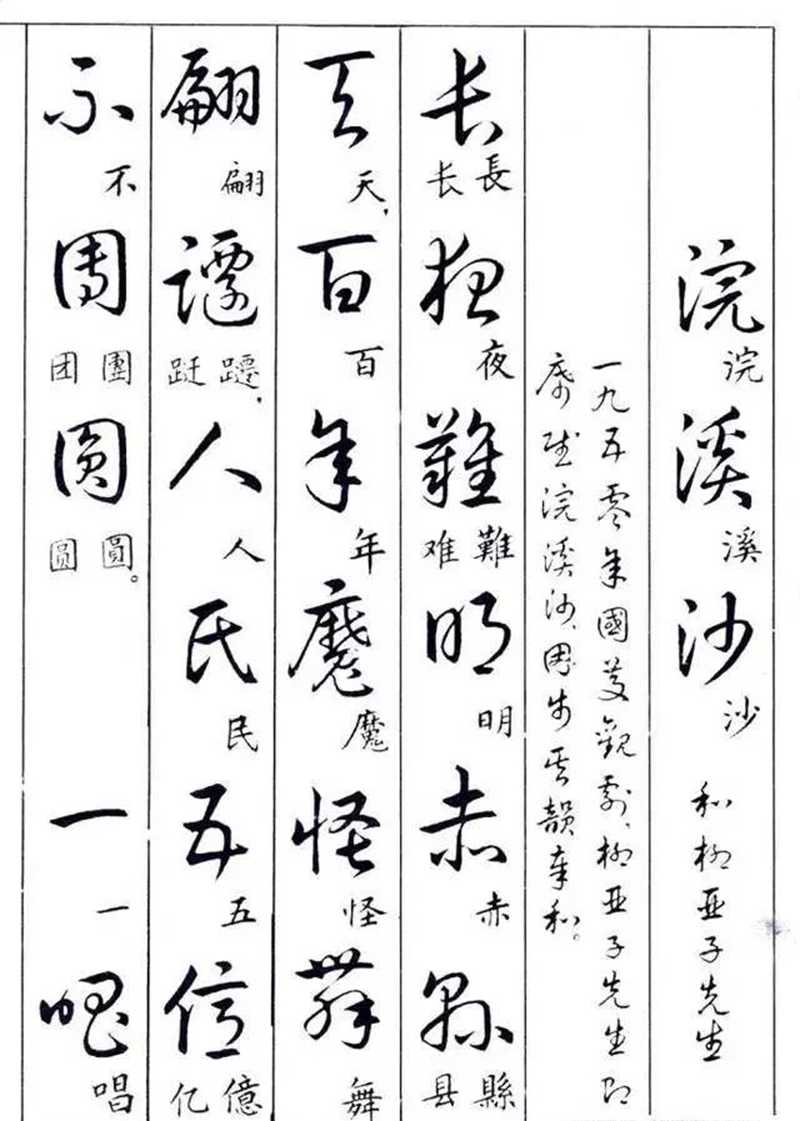 浣溪沙 和柳亚子先生
浣溪沙
一九五零年國慶觀剧、柳亚子先生即
席赋浣溪沙、因步其韻奉和。
长夜難明赤縣
長长 夜 難难 明 赤 縣县
天百年魔怪舞
天, 百 年 魔 怪 舞
翩躚人民五億
翩 躚跹, 人 民 五 億亿
不團圓 一唱
不 團团 圓圆。 一 唱